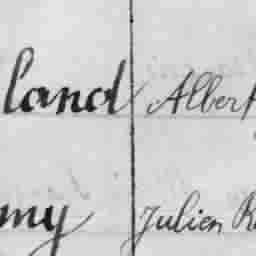 land Albert
my Julien R